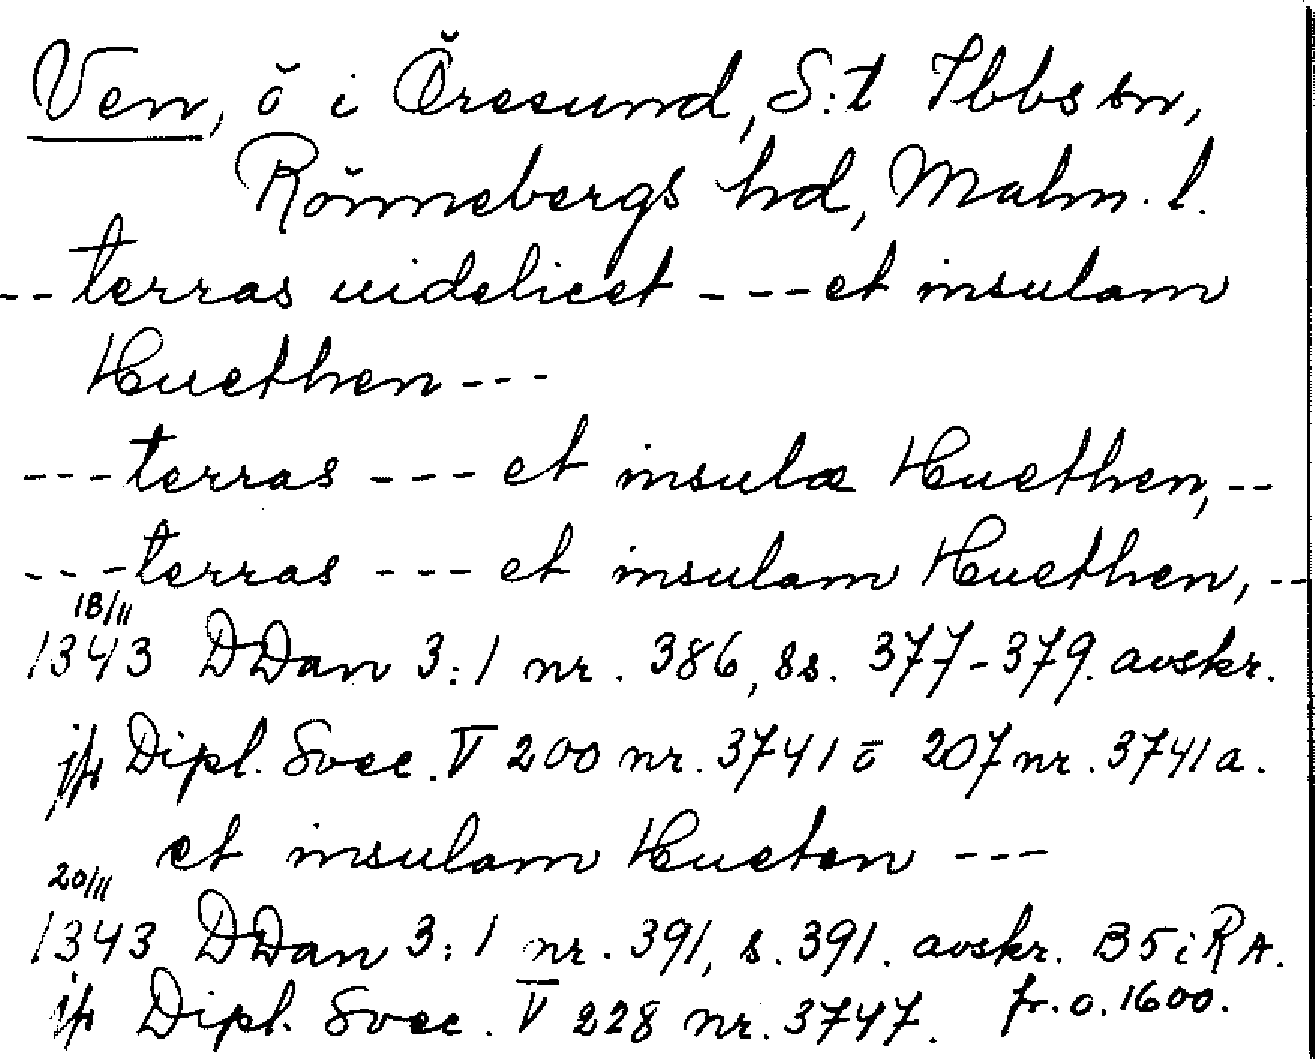 Ven, ö i Öresund, S:t Ibbs sn,
Rönnebergs hd, Malm. l.
-- terras uidelicet --- et insulam
Huethen ---
--- terras --- et insulæ Huethen, --
--- terras --- et insulam Huethen, --
18/11
1343 DDan 3:1 nr. 386, ss. 377-379. avskr.
jfr Dipl. Svec. V 200 nr. 3741 o 207 nr. 3741a.
et insulam Hueten ---
20/11
1343 DDan 3:1 nr. 391, s. 391. avskr. B5 i RA.
jfr Dipl. Svec. V 228 nr. 3747. fr. o. 1600.